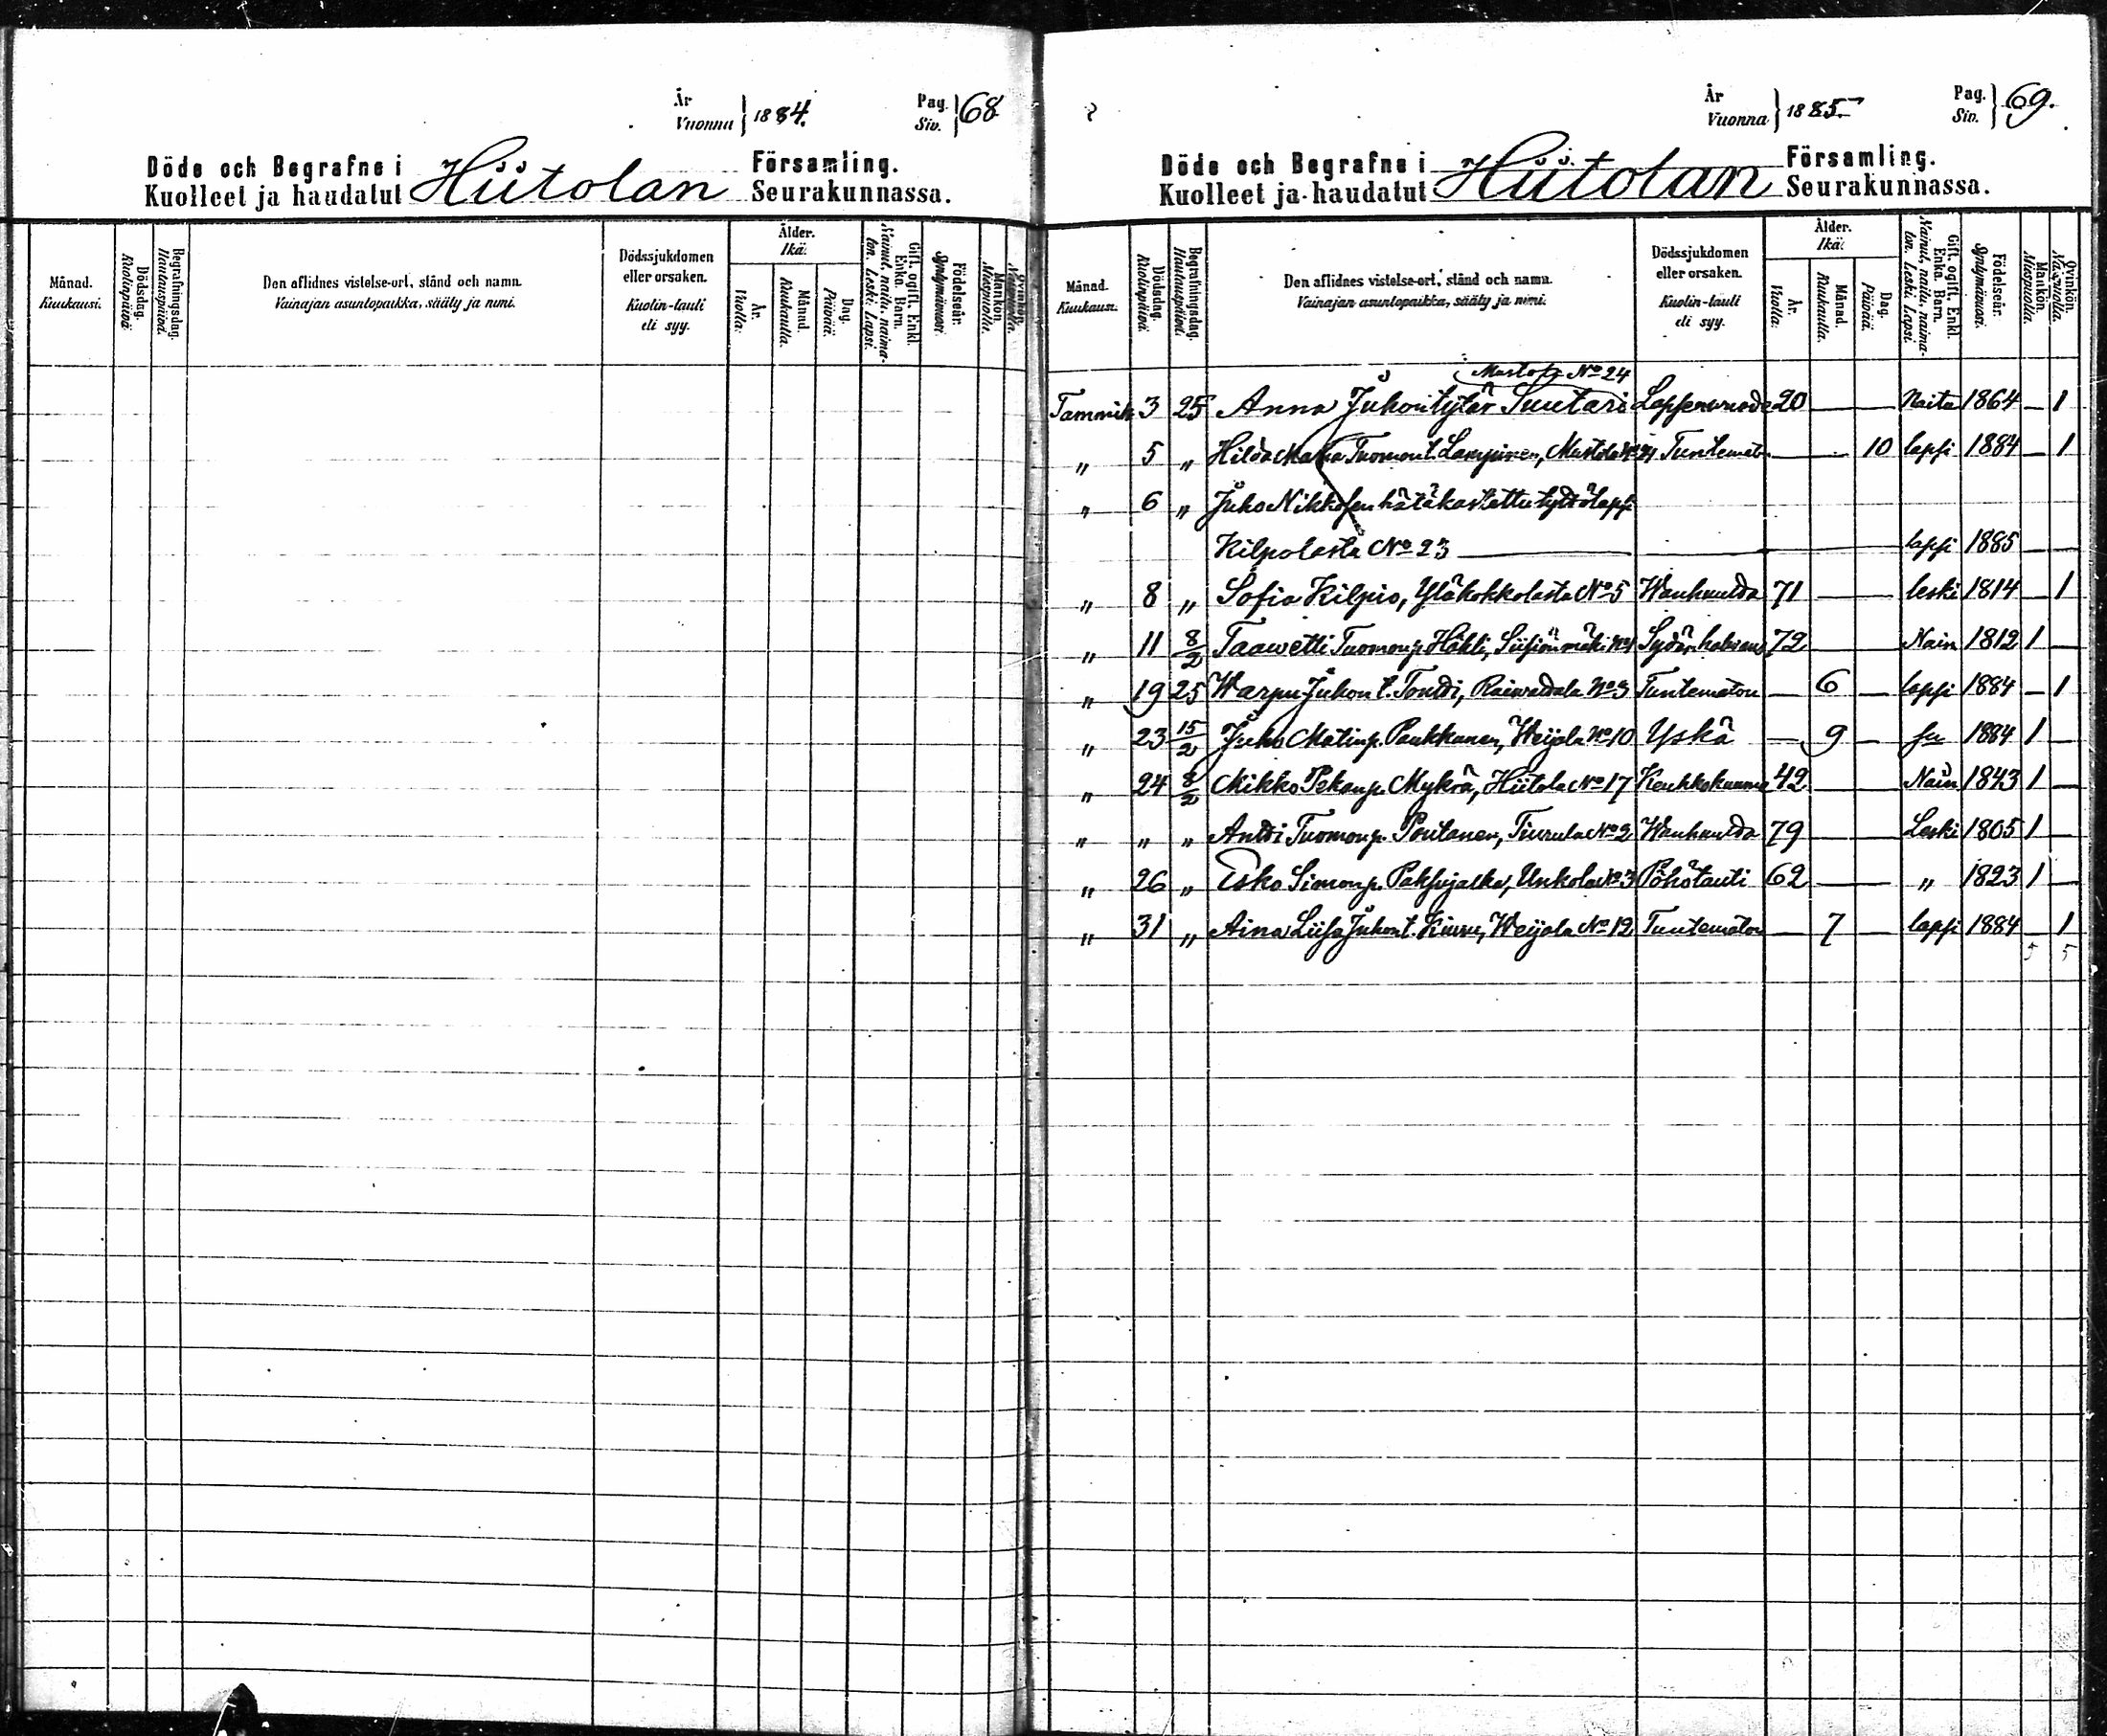 År
Vuonna } 1884.
Pag.
Siv. } 68
Döde och Begrafne i Hiitolan Församling.
Kuolleet ja haudatut Seurakunnassa.
Månad.
Kuukausi.
Dödsdag.
Kuolinpäivä.
Begrafningsdag.
Hautauspäivä.
Den aflidnes vistelse-ort, stånd och namn.
Vainajan asuntopaikka, sääty ja nimi.
Dödssjukdomen
eller orsaken.
Kuolin-tauti
eli syy.
Ålder.
Ikä.
År.
Vuotta.
Månad.
Kuukautta.
Dag.
Päivää.
Gift, ogift, Enkl.
Enka. Barn.
Nainut, naitu, naima-
ton. Leski. Lapsi.
Födelseår.
Syntymävuosi.
Mankön.
Miespuolta.
Qvinkön.
Naispuolta.
År
Vuonna } 1885
Pag.
Siv. } 69.
Döde och Begrafne i Hiitolan Församling.
Kuolleet ja haudatut Seurakunnassa.
Månad.
Kuukausi.
Dödsdag.
Kuolinpäivä.
Begrafningsdag.
Hautauspäivä.
Den aflidnes vistelse-ort, stånd och namn.
Vainajan asuntopaikka, sääty ja nimi.
Dödssjukdomen
eller orsaken.
Kuolin-tauti
eli syy.
Ålder.
Ikä:
År.
Vuotta.
Månad.
Kuukautta.
Dag.
Päivää.
Gift, ogift, Enkl.
Enka. Barn.
Nainut, naitu, naima-
ton. Leski. Lapsi
Födelseår.
Syntymävuosi.
Mankön.
Miespuolta.
Qvinkön.
Naispuolta.
Mustola No 24
Tammik 3 25 Anna Juhontytär Suutari 20 — — Naitu 1864 — 1
" 5 " Hilda Maria Tuomont. Lampinen, Mustola No 24 Tuntemato — — 10 lapsi 1884 — 1
" 6 " Juho Nikkosen hätäkastettu tyttölaps
Kilpolasta No 23 — — — lapsi 1885 — —
" 8 " Sofia Kilpio, Yläkokkolasta No 5 Wanhuutta 71 — — leski 1814 — 1
" 11 8/2 Taawetti Tuomonp. Häkli, No 4 72 — — Nain 1812 1 —
" 19 25 Warpu Juhont. Tontti, Raiwattala No 3 Tuntematon — 6 — lapsi 1884 — 1
" 23 15/2 Juho Matinp. Paukkunen, Weijala No 10 Yskä — 9 — 1884 1 —
" 24 8/2 Mikko Pekanp. Mykrä, Hiitola No 17 Keuhkokuume 42 — — Nain 1843 1 —
" " " Antti Tuomonp. Poutanen, Tiurula No 2 Wanhuutta 79 — — Leski 1805 1 —
" 26 " Esko Simonp. Paksujalka, Unkola No 3 Pöhötauti 62 — — " 1823 1 —
" 31 " Aina Liisa Juhont. Kiuru, Weijala No 12 Tuntematon — 7 — lapsi 1884 — 1
5 5